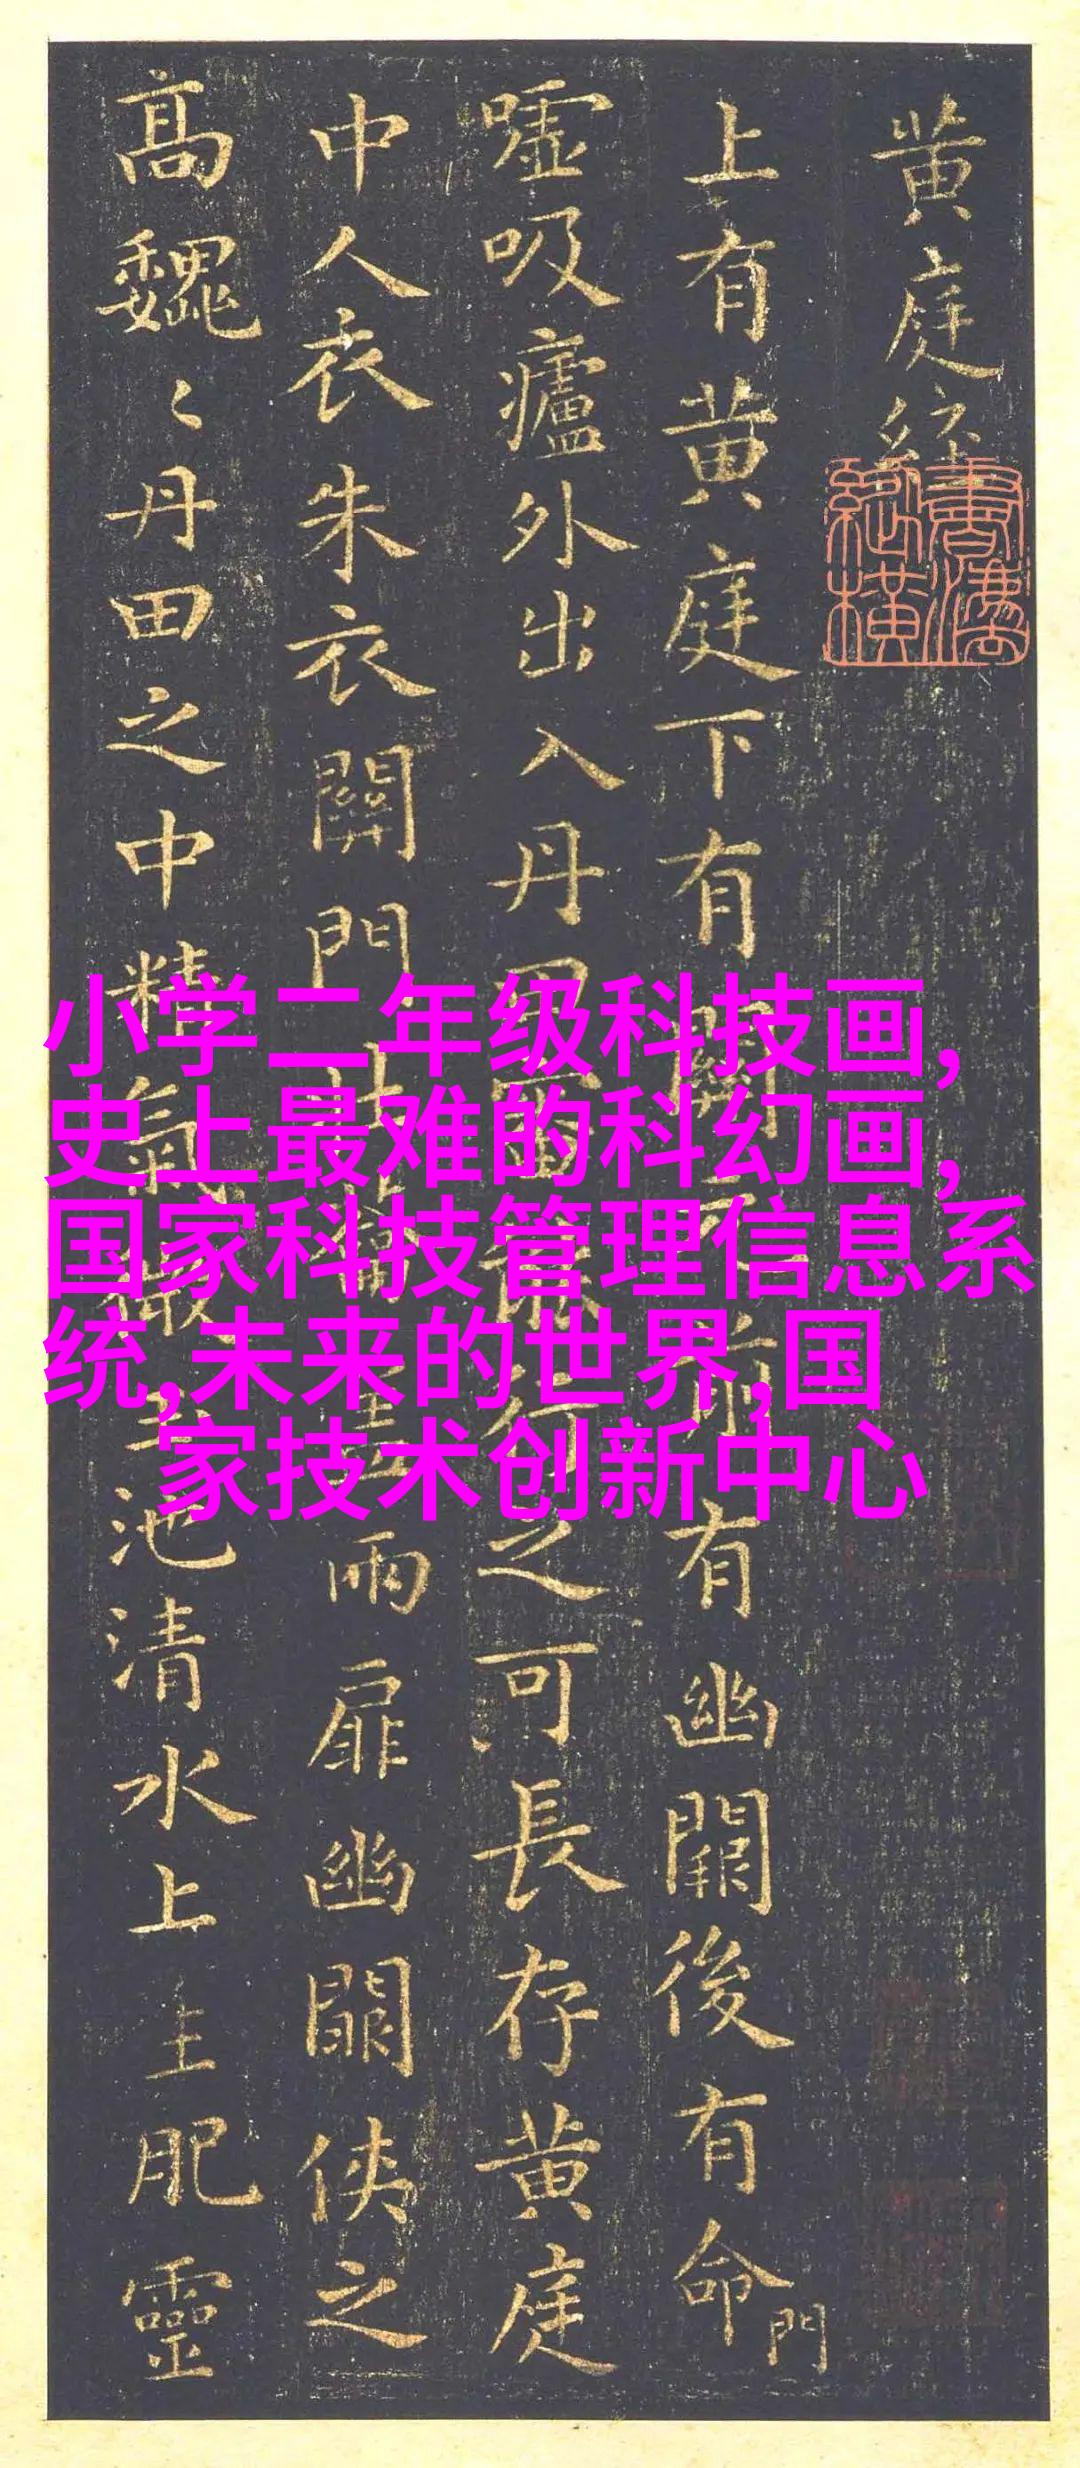 黄庭經
上有黄庭下有關前有幽闕後有命門
嘘吸廬外出入丹田審能行之可長存黄庭
中人衣朱衣關門壯籥蓋兩扉幽闕俠之
高巍〻丹田之中精氣微玉池清水上生肥靈
小学二年级科技画,
史上最难的科幻画,
国家科技管理信息系
统,未来的世界,国
家技术创新中心